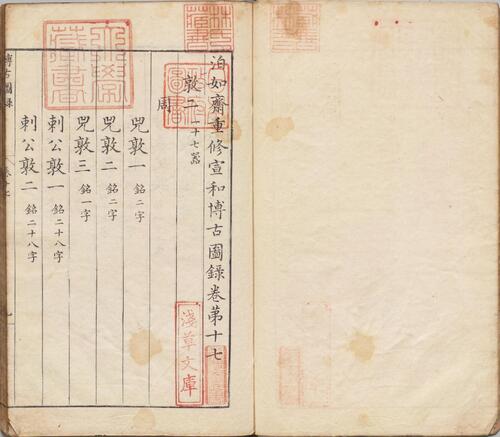 泊如齋重修宣和博古圖錄卷第十七
敦二 一十七器
周
兕敦一 銘二字
兕敦二 銘二字
兕敦三 銘一字
剌公敦一 銘二十八字
剌公敦二 銘二十八字
博古圖錄
淺草文庫
林氏藏書